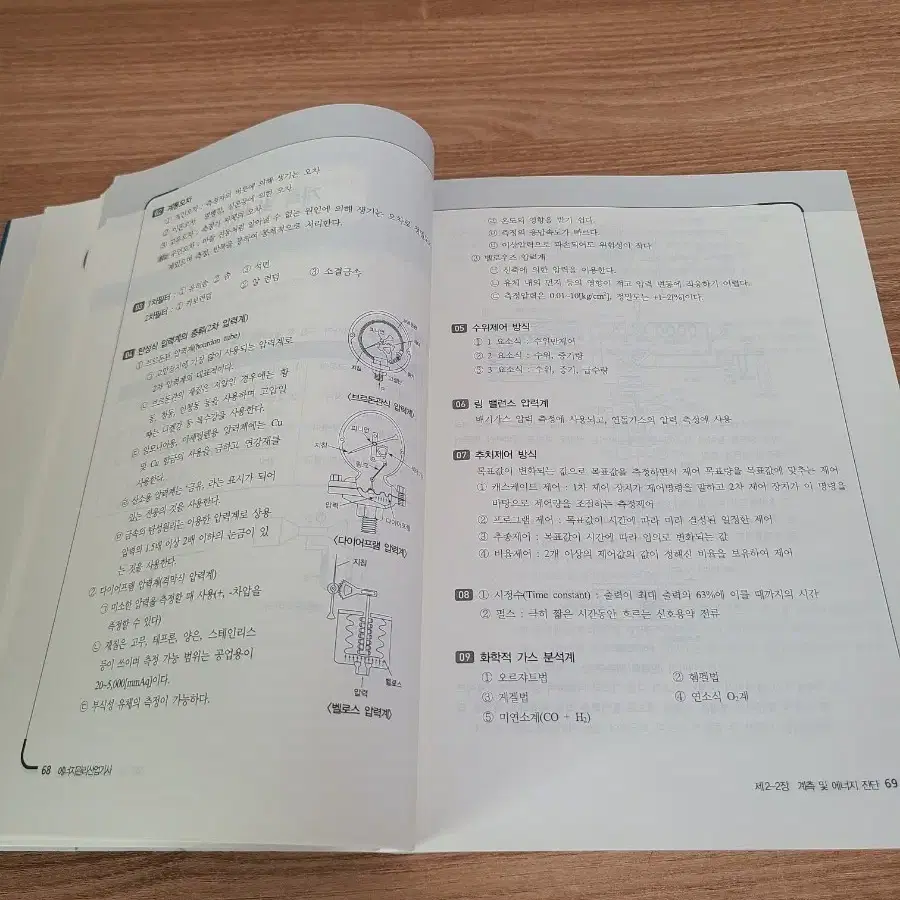 02 계통오차
① 개인오차 : 측정자의 버릇에 의해 생기는 오차
03 1차필터 : ① 유리솜 ② 솜 ③ 석면
③ 소결금속
2차필터 : ① 카보런덤 ② 알런덤
04 탄성식 압력계의 종류(2차 압력계)
① 브르돈관 압력계(bourdon tube)
㉠ 고압용이며 가장 많이 사용되는 압력계로
2차 압력계의 대표적이다.
㉡ 브르돈관의 재질은 저압인 경우에는 황
동, 청동, 인청동 등을 사용하며 고압인
때는 니켈강 등 특수강을 사용한다.
㉢ 암모니아용, 아세틸렌용 압력계에는 Cu
및 Cu 합금의 사용을 금하고 연강재를
사용한다.
㉣ 산소용 압력계는 '금유, 라는 표시가 되어
있는 전용의 것을 사용한다.
㉤ 금속의 탄성원리는 이용한 압력계로 상용
압력의 1.5배 이상 2배 이하의 눈금이 있
는 것을 사용한다.
② 다이어프램 압력계(격막식 압력계)
㉠ 미소한 압력을 측정할 때 사용(+, -차압을
측정할 수 있다)
㉡ 재질은 고무, 테프론, 양은, 스테인리스
등이 쓰이며 측정 가능 범위는 공업용이
20~5,000[mmAq]이다.
㉢ 부식성 유체의 측정이 가능하다.
피니언
지침
<브르돈관식 압력계>
피니언
지침
링크
압력
다이아프램
<다이어프램 압력계>
지침
벨로스
압력
<벨로스 압력계>
68 에너지관리산업기사
㉣ 온도의 영향을 받기 쉽다.
㉤ 측정의 응답속도가 빠르다.
㉥ 이상압력으로 파손되어도 위험성이 작다
③ 벨로우즈 압력계
㉠ 신축에 의한 압력을 이용한다.
㉡ 유체 내의 먼지 등의 영향이 적고 압력 변동에 적응하기 어렵다.
㉢ 측정압력은 0.01~10[kg/cm²], 정밀도는 ±1~2[%]이다.
05 수위제어 방식
① 1 요소식 : 수위만제어
② 2 요소식 : 수위, 증기량
③ 3 요소식 : 수위, 증기, 급수량
06 링 밸런스 압력계
배기가스 압력 측정에 사용되고, 연돌가스의 압력 측정에 사용
07 추치제어 방식
목표값이 변화되는 값으로 목표값을 측정하면서 제어 목표량을 목표값에 맞추는 제어
① 캐스케이드 제어 : 1차 제어 장치가 제어명령을 말하고 2차 제어 장치가 이 명령을
바탕으로 제어량을 조절하는 측정제어
② 프로그램 제어 : 목표값이 시간에 따라 미리 결정된 일정한 제어
③ 추종제어 : 목표값이 시간에 따라 임의로 변화되는 값
④ 비율제어 : 2개 이상의 제어값의 값이 정해진 비율을 보유하여 제어
08 ① 시정수(Time constant) : 출력이 최대 출력의 63%에 이를 때까지의 시간
② 펄스 : 극히 짧은 시간동안 흐르는 신호용약 전류
09 화학적 가스 분석계
① 오르쟈트법 ② 헴펠법
③ 게겔법 ④ 연소식 O₂계
⑤ 미연소계(CO + H₂)
제2-2장 계측 및 에너지 진단 69